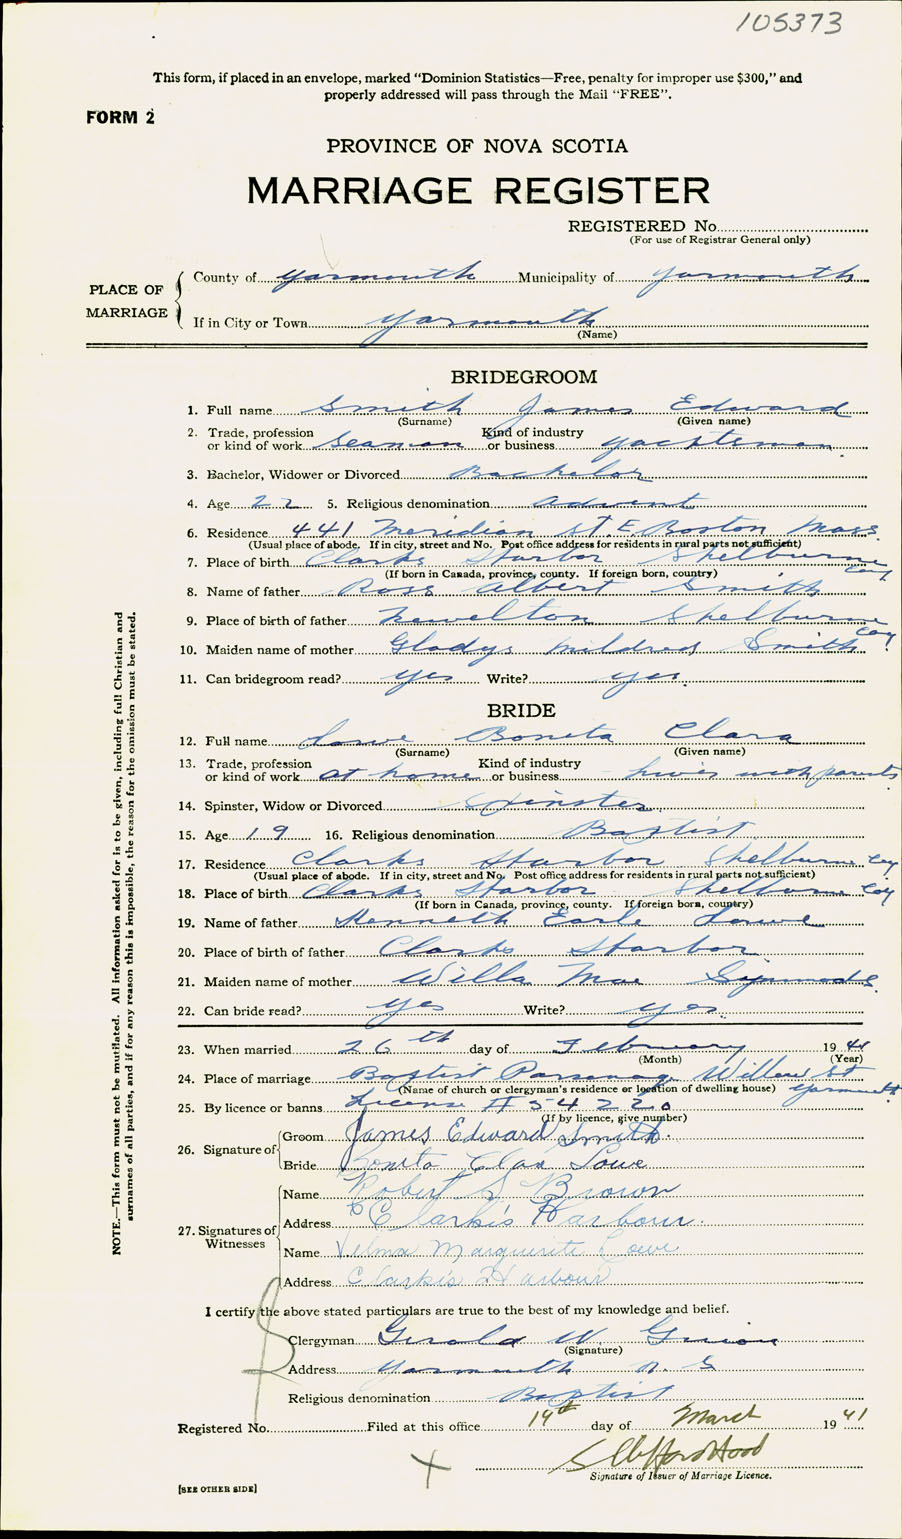 105373
This form, if placed in an envelope, marked "Dominion Statistics—Free, penalty for improper use $300," and
properly addressed will pass through the Mail "FREE".
FORM 2
PROVINCE OF NOVA SCOTIA
MARRIAGE REGISTER
REGISTERED No.
(For use of Registrar General only)
PLACE OF MARRIAGE
County of Yarmouth Municipality of Yarmouth
If in City or Town Yarmouth
(Name)
BRIDEGROOM
1. Full name Smith James Edward
(Surname) (Given name)
2. Trade, profession or kind of work Seaman Kind of industry or business Yachtsman
3. Bachelor, Widower or Divorced Bachelor
4. Age 22 5. Religious denomination Advent
6. Residence 441 Meridian St. E. Boston Mass
(Usual place of abode. If in city, street and No. Post office address for residents in rural parts not sufficient)
7. Place of birth Clarks Harbor Shelburne Coy
(If born in Canada, province, county. If foreign born, country)
8. Name of father Ross Albert Smith
9. Place of birth of father Newelton Shelburne Coy
10. Maiden name of mother Gladys Mildred Smith
11. Can bridegroom read? yes Write? yes.
BRIDE
12. Full name Lowe Boneta Clara
(Surname) (Given name)
13. Trade, profession or kind of work at home Kind of industry or business lives with parents
14. Spinster, Widow or Divorced Spinster
15. Age 19 16. Religious denomination Baptist
17. Residence Clarks Harbor Shelburne Coy
(Usual place of abode. If in city, street and No. Post office address for residents in rural parts not sufficient)
18. Place of birth Clarks Harbor Shelburne Coy
(If born in Canada, province, county. If foreign born, country)
19. Name of father Kenneth Earle Lowe
20. Place of birth of father Clarks Harbor
21. Maiden name of mother Willa Mae
22. Can bride read? yes Write? yes.
23. When married 26th day of February 1941
(Month) (Year)
24. Place of marriage Baptist Parsonage Willow St Yarmouth
(Name of church or clergyman's residence or location of dwelling house)
25. By licence or banns License # 54220
(If by licence, give number)
26. Signature of Groom James Edward Smith.
Bride Boneta Clara Lowe
27. Signatures of Witnesses Name Robert S Brown
Address Clark's Harbour.
Name Velma Marguerite Lowe
Address Clark's Harbour
I certify the above stated particulars are true to the best of my knowledge and belief.
Clergyman Gerald W
(Signature)
Address Yarmouth N.S
Religious denomination Baptist
Registered No. Filed at this office 14th day of March 1941
S Clifford Hood
Signature of Issuer of Marriage Licence.
[SEE OTHER SIDE]
NOTE.—This form must not be mutilated. All information asked for is to be given, including full Christian and
surnames of all parties, and if for any reason this is impossible, the reason for the omission must be stated.